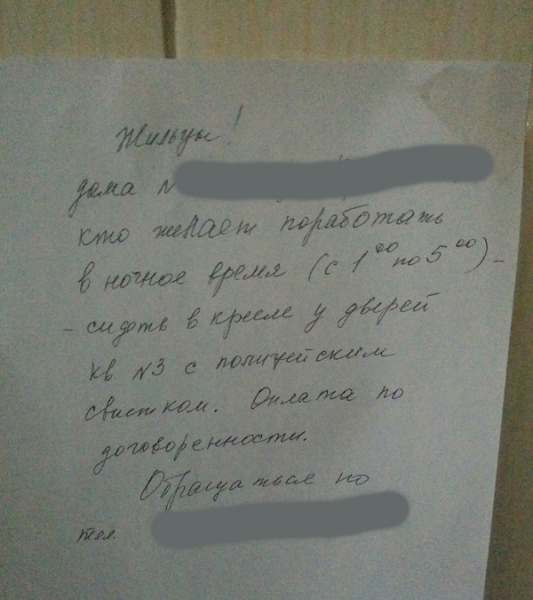 Жильцы!
дома N
кто желает поработать
в ночное время (с 1⁰⁰ по 5⁰⁰) -
- сидеть в кресле у дверей
кв N3 с полицейским
свистком. Оплата по
договоренности.
Обращаться по
тел